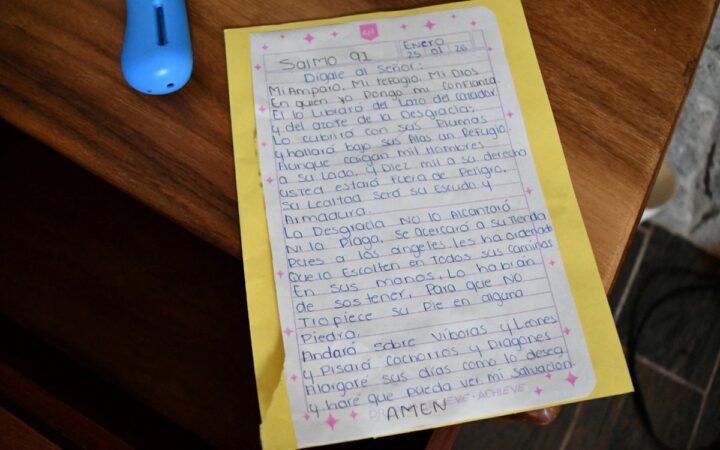 Salmo 91
Enero
25 01 26
Digale al Señor:
Mi Amparo, Mi refugio, Mi Dios
En quien yo Pongo mi Confianza
El lo Librará del Lazo del Cazador
y del azote de la Desgracia;
Lo cubrirá con sus Plumas
y hallará bajo sus Alas un Refugio.
Aunque caigan mil Hombres
a su Lado, y Diez mil a su derecha
usted estará Fuera de Peligro,
su Lealtad será su Escudo y
Armadura.
La Desgracia No lo Alcanzará
Ni la Plaga, se Acercará a su Tienda
Pues a los ángeles les ha ordenado
Que lo Escolten en Todos sus Caminos
En sus manos, Lo habrán
de sostener, Para que NO
Tropiece su Pie en alguna
Piedra.
Andará sobre Víboras y Leones
y Pisará Cachorros y Dragones
Alargaré sus días como lo desea
y haré que pueda ver mi salvación
EVE · ACHIEVE
AMEN